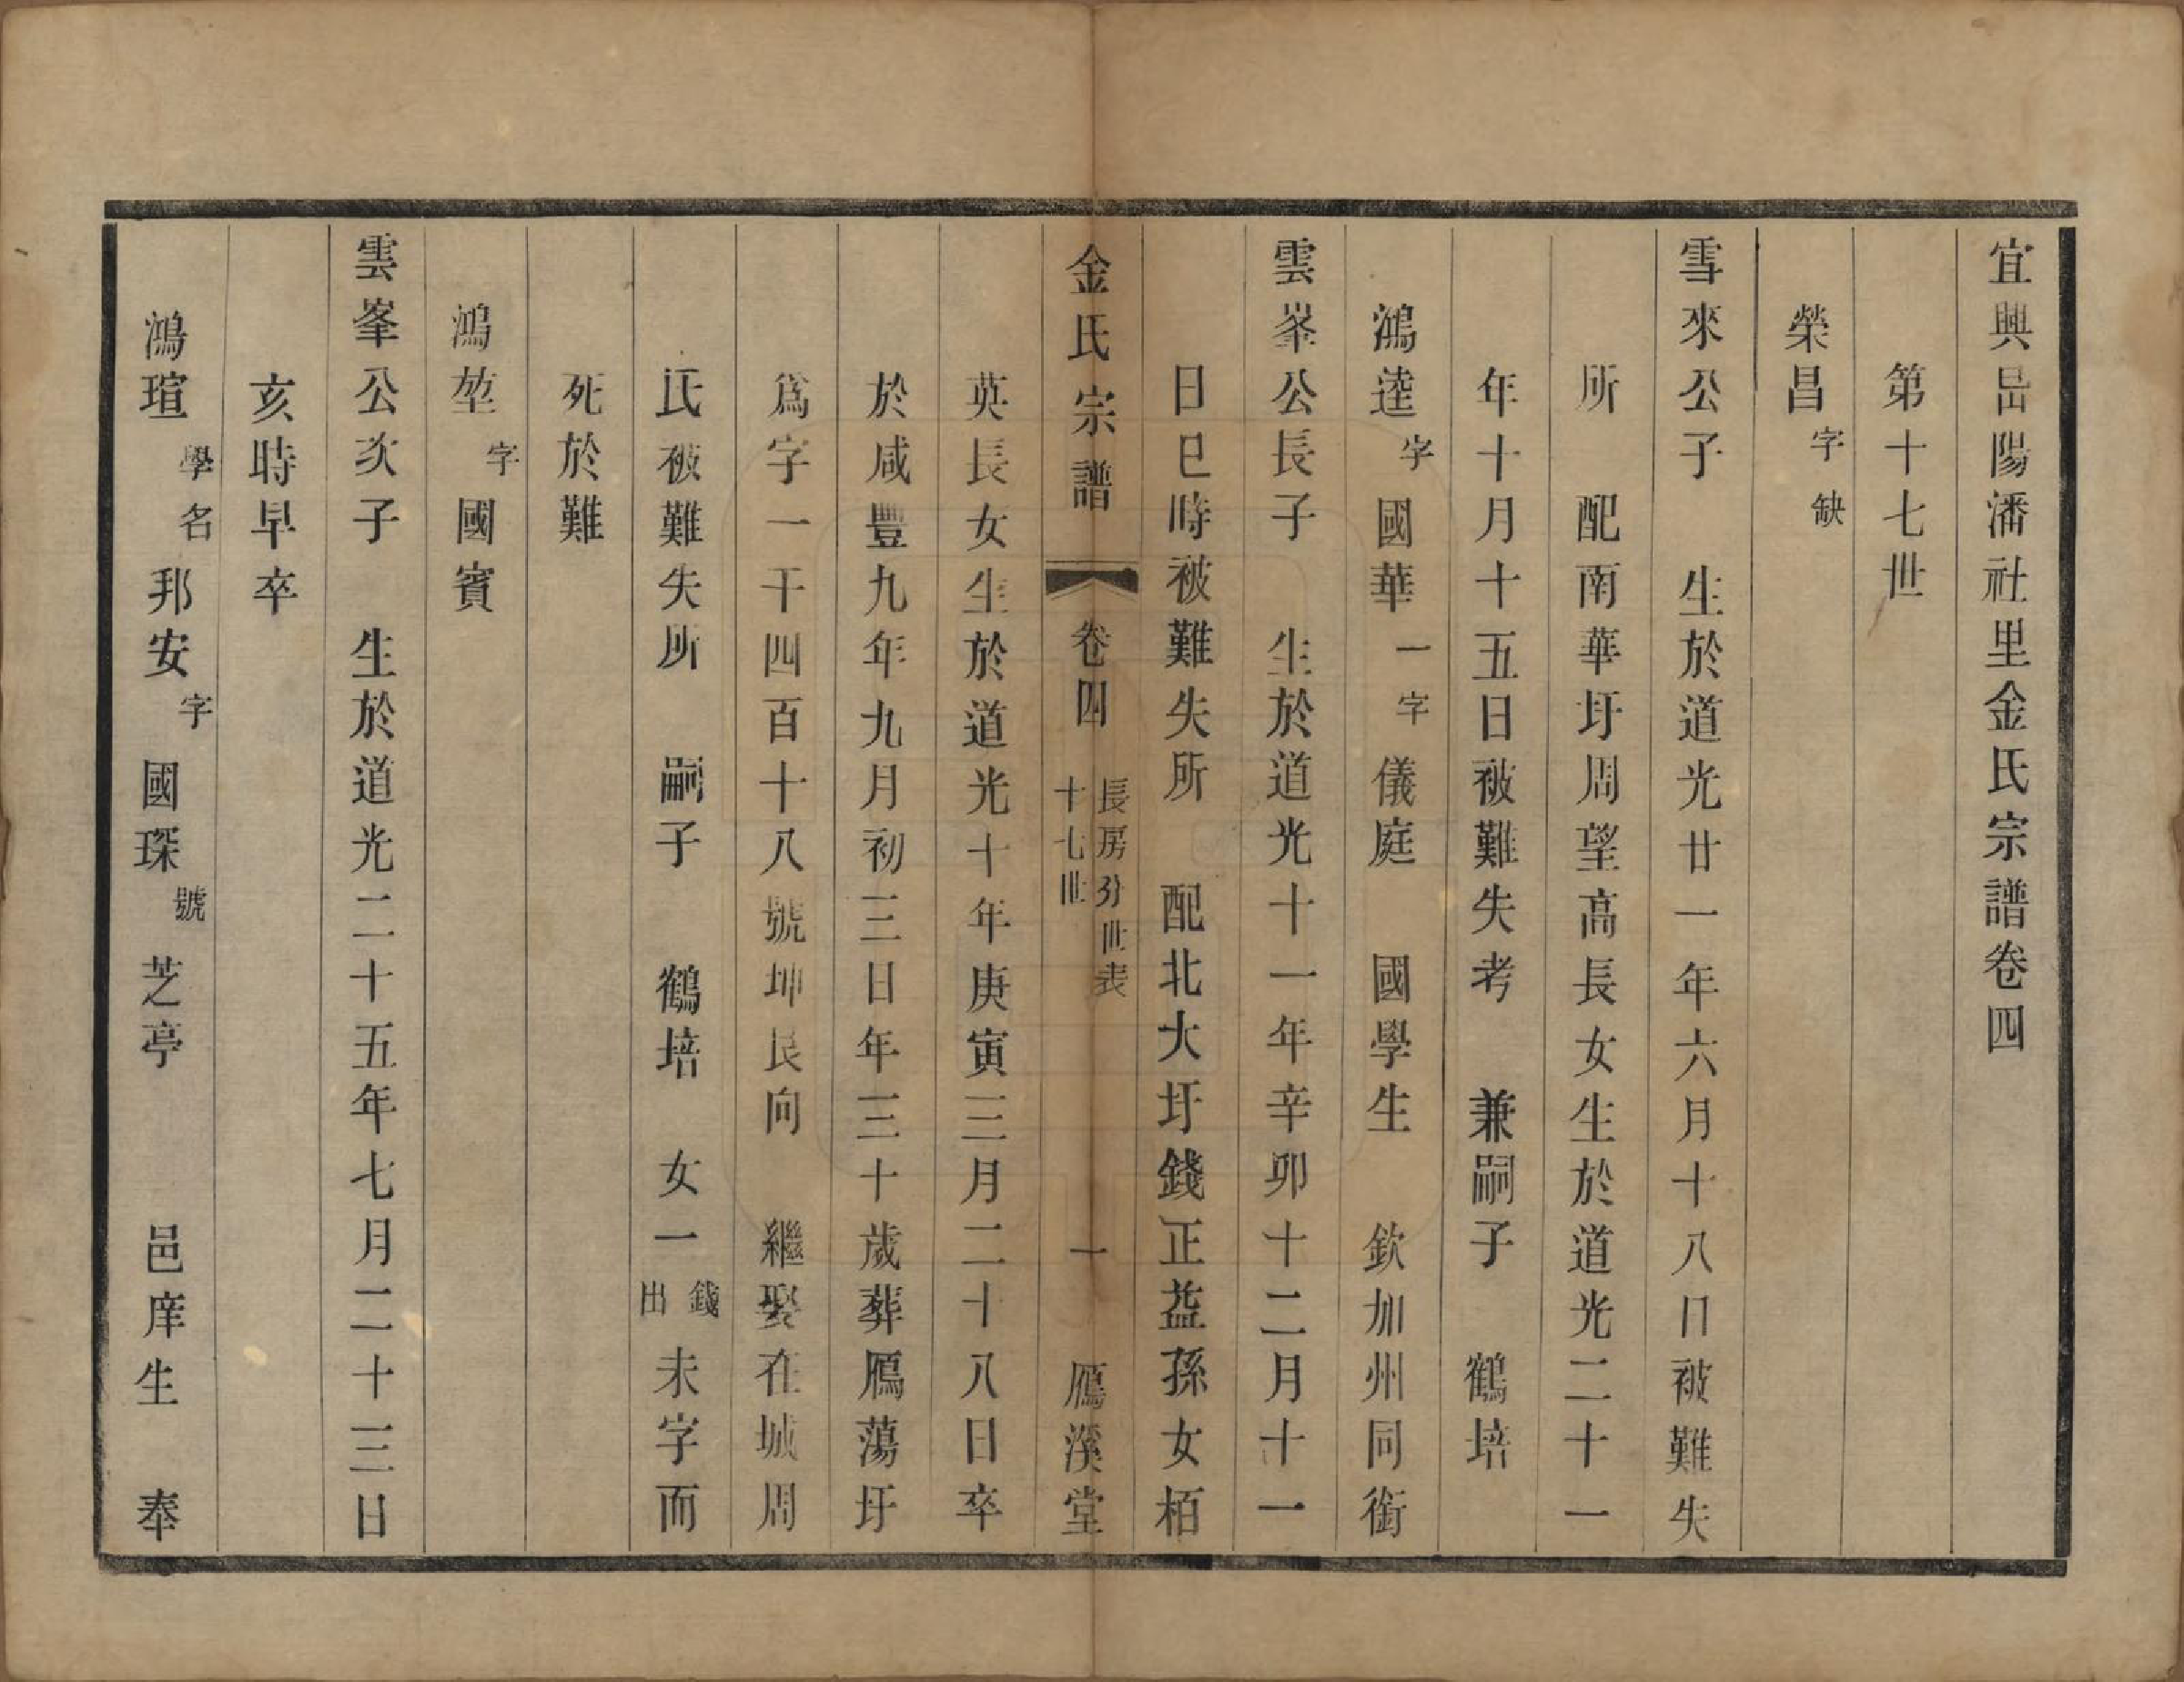 宜興嵒陽潘社里金氏宗譜卷四
第十七世
榮昌字缺
雪來公子　生於道光廿一年六月十八日被難失
所　配南華圩周望高長女生於道光二十一
年十月十五日被難失考　兼嗣子　鶴培
鴻逵字國華一字儀庭　國學生　欽加州同銜
雲峯公長子　生於道光十一年辛卯十二月十一
日巳時被難失所　配北大圩錢正益孫女栢
金氏宗譜　卷四　長房分世表　十七世　一　鴈溪堂
英長女生於道光十年庚寅三月二十八日卒
於咸豐九年九月初三日年三十歲葬鴈蕩圩
爲字一千四百十八號坤艮向　繼娶在城周
氏被難失所　嗣子　鶴培　女一錢出未字而
死於難
鴻堃字國賓
雲峯公次子　生於道光二十五年七月二十三日
亥時早卒
鴻瑄學名邦安字國琛號芝亭　邑庠生　奉